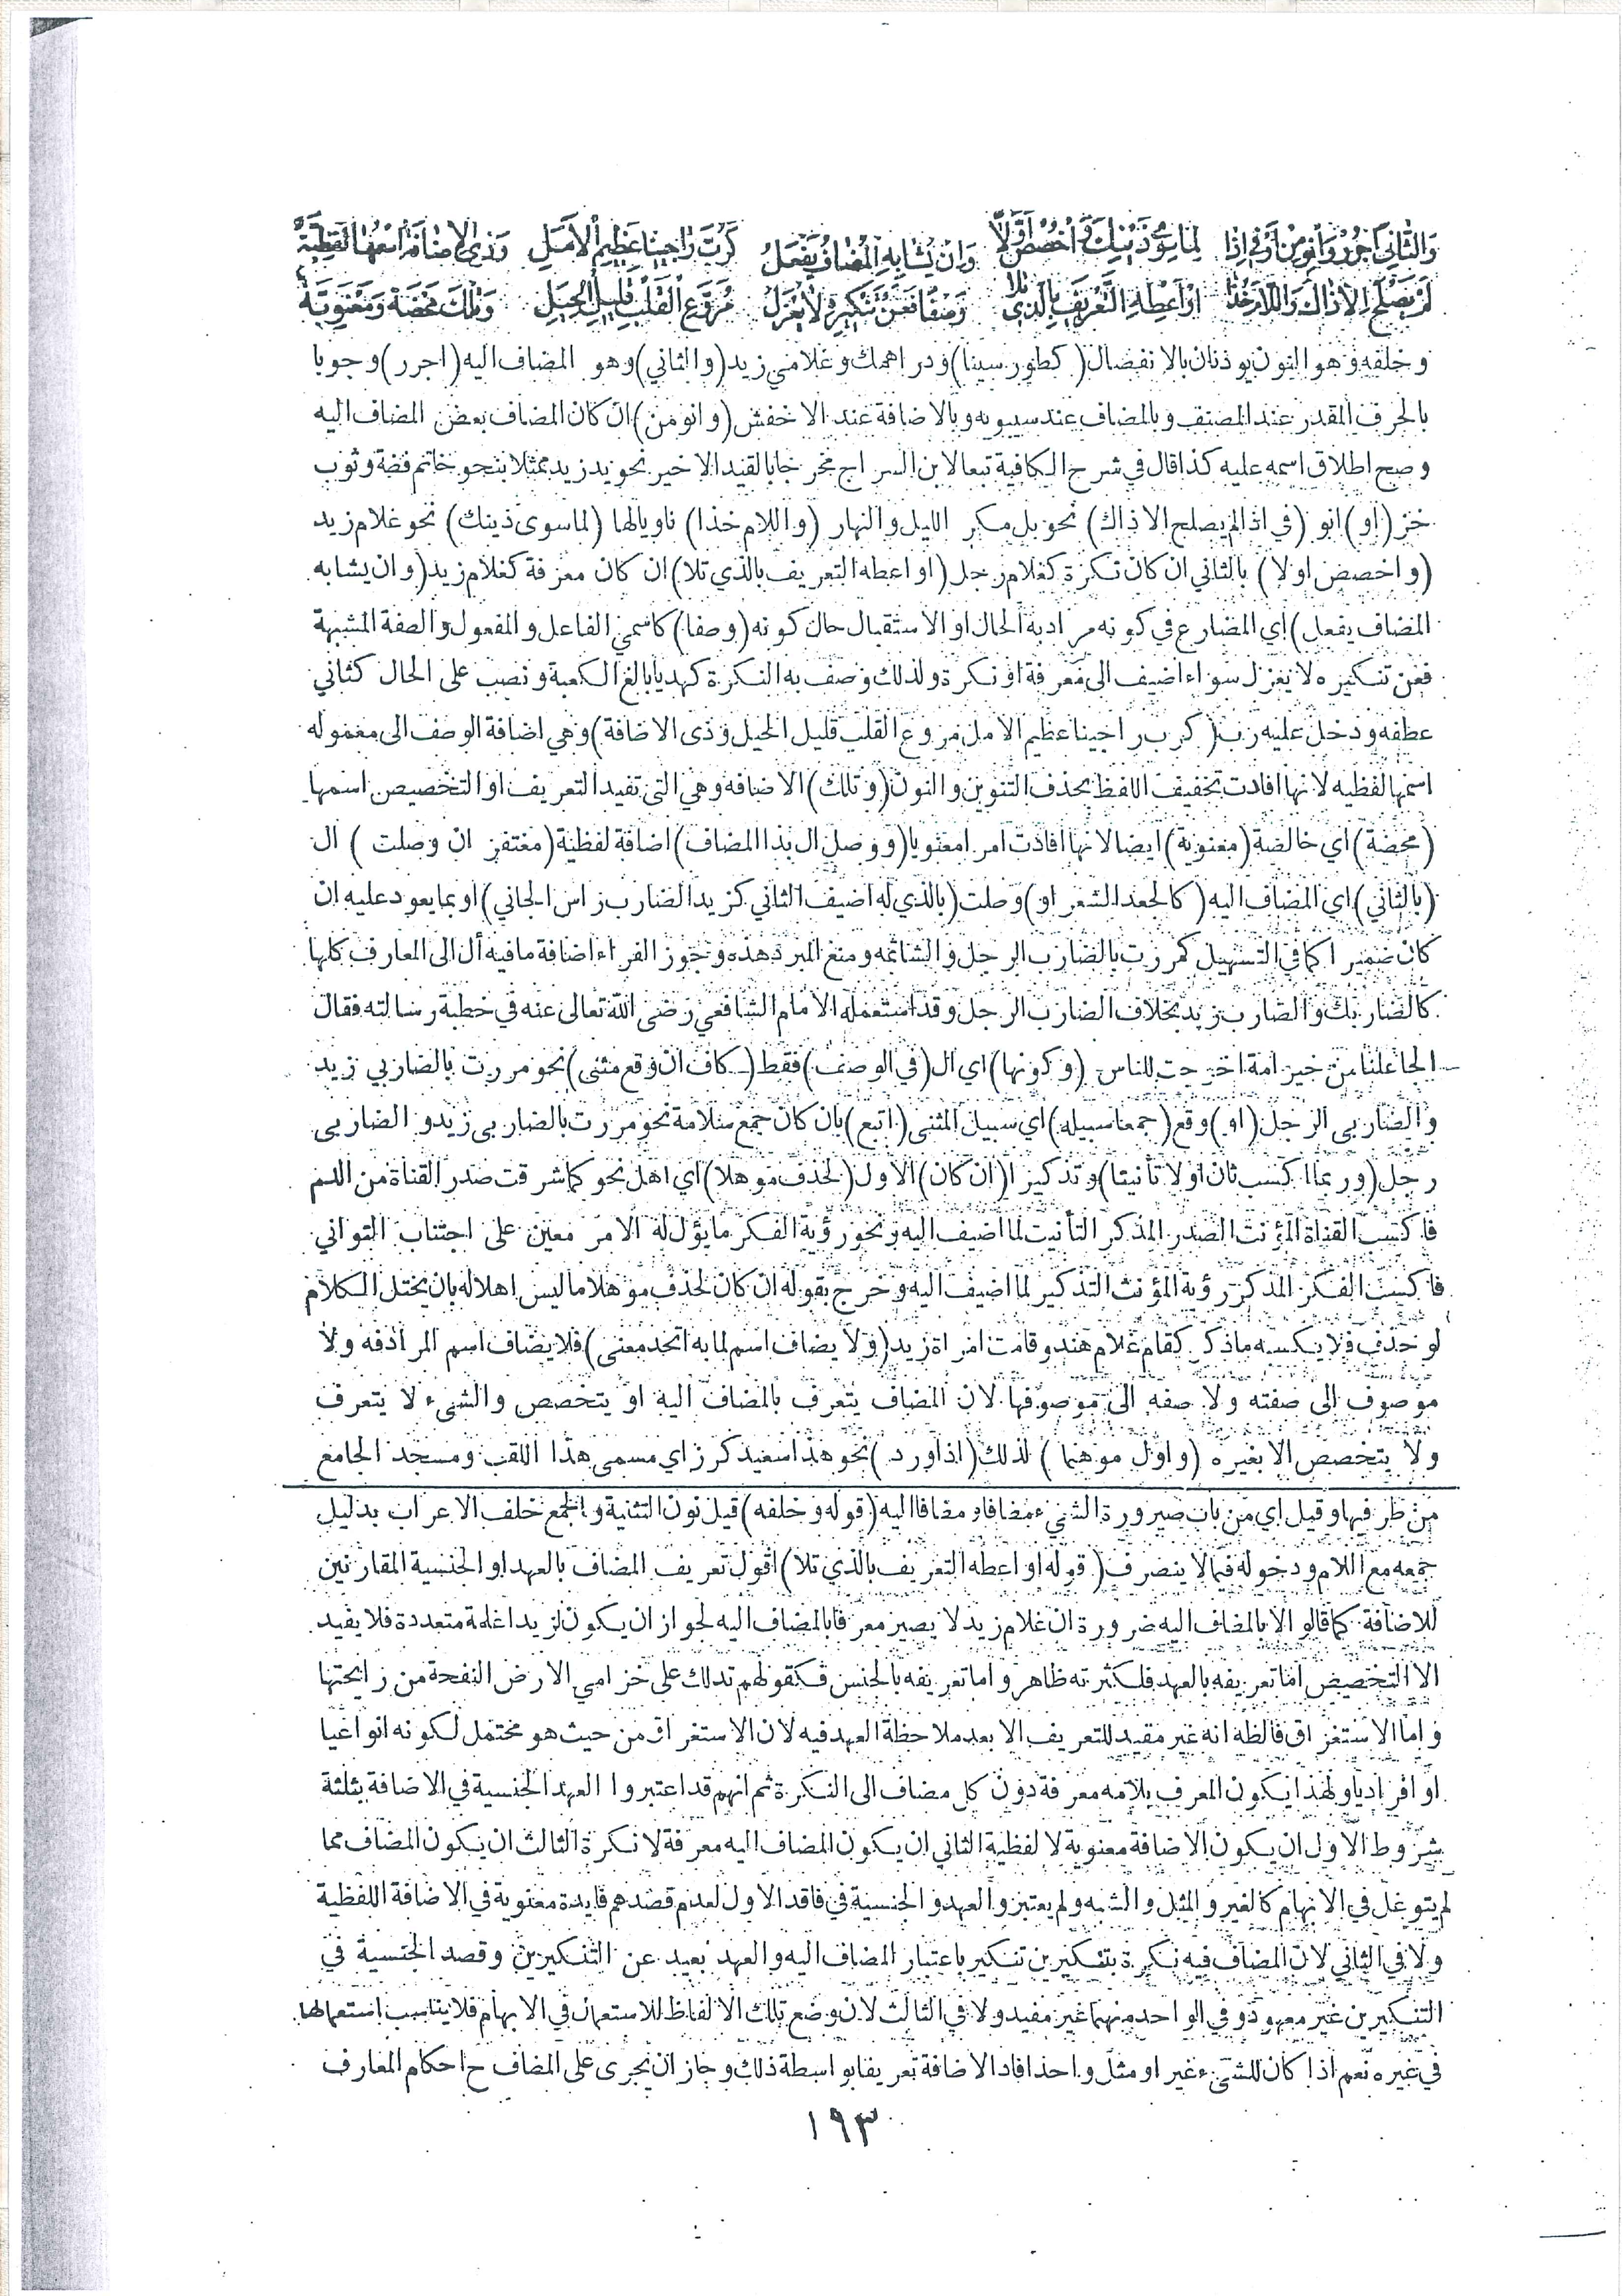 وَالثَّانِيَ اجْرُرْ وَانْوِ مِنْ اَوْ فِي اِذَا لِمَا سِوَى ذَيْنِكَ وَاخْصُصْ اَوَّلَا وَاِنْ يُشَابِهِ الْمُضَافُ يَفْعَلُ كَرُبَّ رَاجِينَا عَظِيمِ الْاَمَلِ وَذِي الْاِضَافَةُ اسْمُهَا لَفْظِيَّةْ
لَمْ يَصْلُحِ الْاذَاكَ وَاللَّامَ خُذَا اَوْ اَعْطِهِ التَّعْرِيفَ بِالَّذِي تَلَا وَصْفًا فَعَنْ تَنْكِيرِهِ لَا يُعْزَلُ مُرَوَّعِ الْقَلْبِ قَلِيلِ الْحِيَلِ وَتِلْكَ مَحْضَةٌ وَمَعْنَوِيَّةْ
وخلفه وهو النون يوذنان بالانفصال (كطور سينا) ودراهمك وغلامي زيد (والثاني) وهو المضاف اليه (اجرر) وجوبا
بالحرف المقدر عند المصنف وبالمضاف عند سيبويه وبالاضافة عند الاخفش (وانو من) ان كان المضاف بعض المضاف اليه
وصح اطلاق اسمه عليه كذا قال في شرح الكافية تبعا لابن السراج مخرجا بالقيد الاخير نحو يد زيد ممثلا بنحو خاتم فضة وثوب
خز (او) انو (في اذا لم يصلح الا ذاك) نحو بل مكر الليل والنهار (واللام خذا) ناويا لها (لما سوى ذينك) نحو غلام زيد
(واخصص اولا) بالثاني ان كان نكرة كغلام رجل (او اعطه التعريف بالذي تلا) ان كان معرفة كغلام زيد (وان يشابه
المضاف يفعل) اي المضارع في كونه مرادا به الحال او الاستقبال حال كونه (وصفا) كاسمي الفاعل والمفعول والصفة المشبهة
فعن تنكيره لا يعزل سواء اضيف الى معرفة او نكرة ولذلك وصف به النكرة كهديا بالغ الكعبة ونصب على الحال كثاني
عطفه ودخل عليه رب (كرب راجينا عظيم الامل مروع القلب قليل الحيل وذى الاضافة) وهي اضافة الوصف الى معموله
اسمها لفظيه لانها افادت تخفيف اللفظ بحذف التنوين والنون (وتلك) الاضافه وهي التي تفيد التعريف او التخصيص اسمها
(محضة) اي خالصة (معنوية) ايضا لانها افادت امرا معنويا (ووصل ال بذا المضاف) اضافة لفظية (مغتفر ان وصلت) ال
(بالثاني) اي المضاف اليه (كالجعد الشعر او) وصلت (بالذي له اضيف الثاني كزيد الضارب راس الجاني) او بما يعود عليه ان
كان ضميرا كما في التسهيل كمررت بالضارب الرجل والشاتمه ومنع المبرد هذه وجوز الفراء اضافة ما فيه أل الى المعارف كلها
كالضاربك والضارب زيد بخلاف الضارب الرجل وقد استعمله الامام الشافعي رضى الله تعالى عنه في خطبة رسالته فقال
الجاعلنا من خير امة اخرجت للناس (وكونها) اي ال (في الوصف) فقط (كاف ان وقع مثنى) نحو مررت بالضاربي زيد
والضاربي الرجل (او) وقع (جمعا سبيله) اي سبيل المثنى (اتبع) بان كان جمع سلامة نحو مررت بالضاربي زيد والضاربى
رجل (وربما اكسب ثان اولا تأنيثا) وتذكيرا (ان كان) الاول (لحذف موهلا) اي اهل نحو كما شرقت صدر القناة من الدم
فاكسب القناة المؤنث الصدر المذكر التأنيث لما اضيف اليه ونحو رؤية الفكر ما يؤل له الامر معين على اجتناب التواني
فاكسب الفكر المذكر رؤية المؤنث التذكير لما اضيف اليه وخرج بقوله ان كان لحذف موهلا ما ليس اهلا له بان يختل الكلام
لو حذف فلا يكسبه ما ذكر كقام غلام هند وقامت امراة زيد (ولا يضاف اسم لما به اتحد معنى) فلا يضاف اسم المرادفه ولا
موصوف الى صفته ولا صفه الى موصوفها لان المضاف يتعرف بالمضاف اليه او يتخصص والشىء لا يتعرف
ولا يتخصص الا بغيره (واول موهما) لذلك (اذا ورد) نحو هذا سعيد كرز اي مسمى هذا اللقب ومسجد الجامع
من طرفيها وقيل اي من باب صيرورة الشيء مضافا ومضافا اليه (قوله وخلفه) قيل نون التثنية والجمع خلف الاعراب بدليل
جمعه مع اللام ودخوله فيما لا ينصرف (قوله او اعطه التعريف بالذي تلا) اقول تعريف المضاف بالعهد او الجنسية المقارنين
للاضافة كما قالو الا بالمضاف اليه ضرورة ان غلام زيد لا يصير معرفا بالمضاف اليه لجواز ان يكون لزيد اغلمة متعددة فلا يفيد
الا التخصيص اما تعريفه بالعهد فلكثرته ظاهر واما تعريفه بالجنس فكقولهم تدلك على خزامي الارض النفحة من رايحتها
واما الاستغراق فالظه انه غير مفيد للتعريف الا بعد ملاحظة العهد فيه لان الاستغراق من حيث هو محتمل لكونه انواعيا
او افراديا ولهذا يكون المعرف بلامه معرفة دون كل مضاف الى النكرة ثم انهم قد اعتبروا العهد الجنسية في الاضافة بثلثة
شروط الاول ان يكون الاضافة معنوية لا لفظية الثاني ان يكون المضاف اليه معرفة لا نكرة الثالث ان يكون المضاف مما
لم يتوغل في الابهام كالغير والمثل والشبه ولم يعتبروا العهد والجنسية في فاقد الاول لعدم قصدهم فايدة معنوية في الاضافة اللفظية
ولا في الثاني لان المضاف فيه نكرة بتنكيرين تنكير باعتبار المضاف اليه والعهد بعيد عن التنكيرين وقصد الجنسية في
التنكيرين غير معهود وفي الواحد منهما غير مفيد ولا في الثالث لان وضع تلك الالفاظ للاستعمال في الابهام فلا يناسب استعمالها
في غيره نعم اذا كان للشيء غير او مثل واحد افاد الاضافة تعريفا بواسطة ذلك وجاز ان يجرى على المضاف ح احكام المعارف
١٩٣